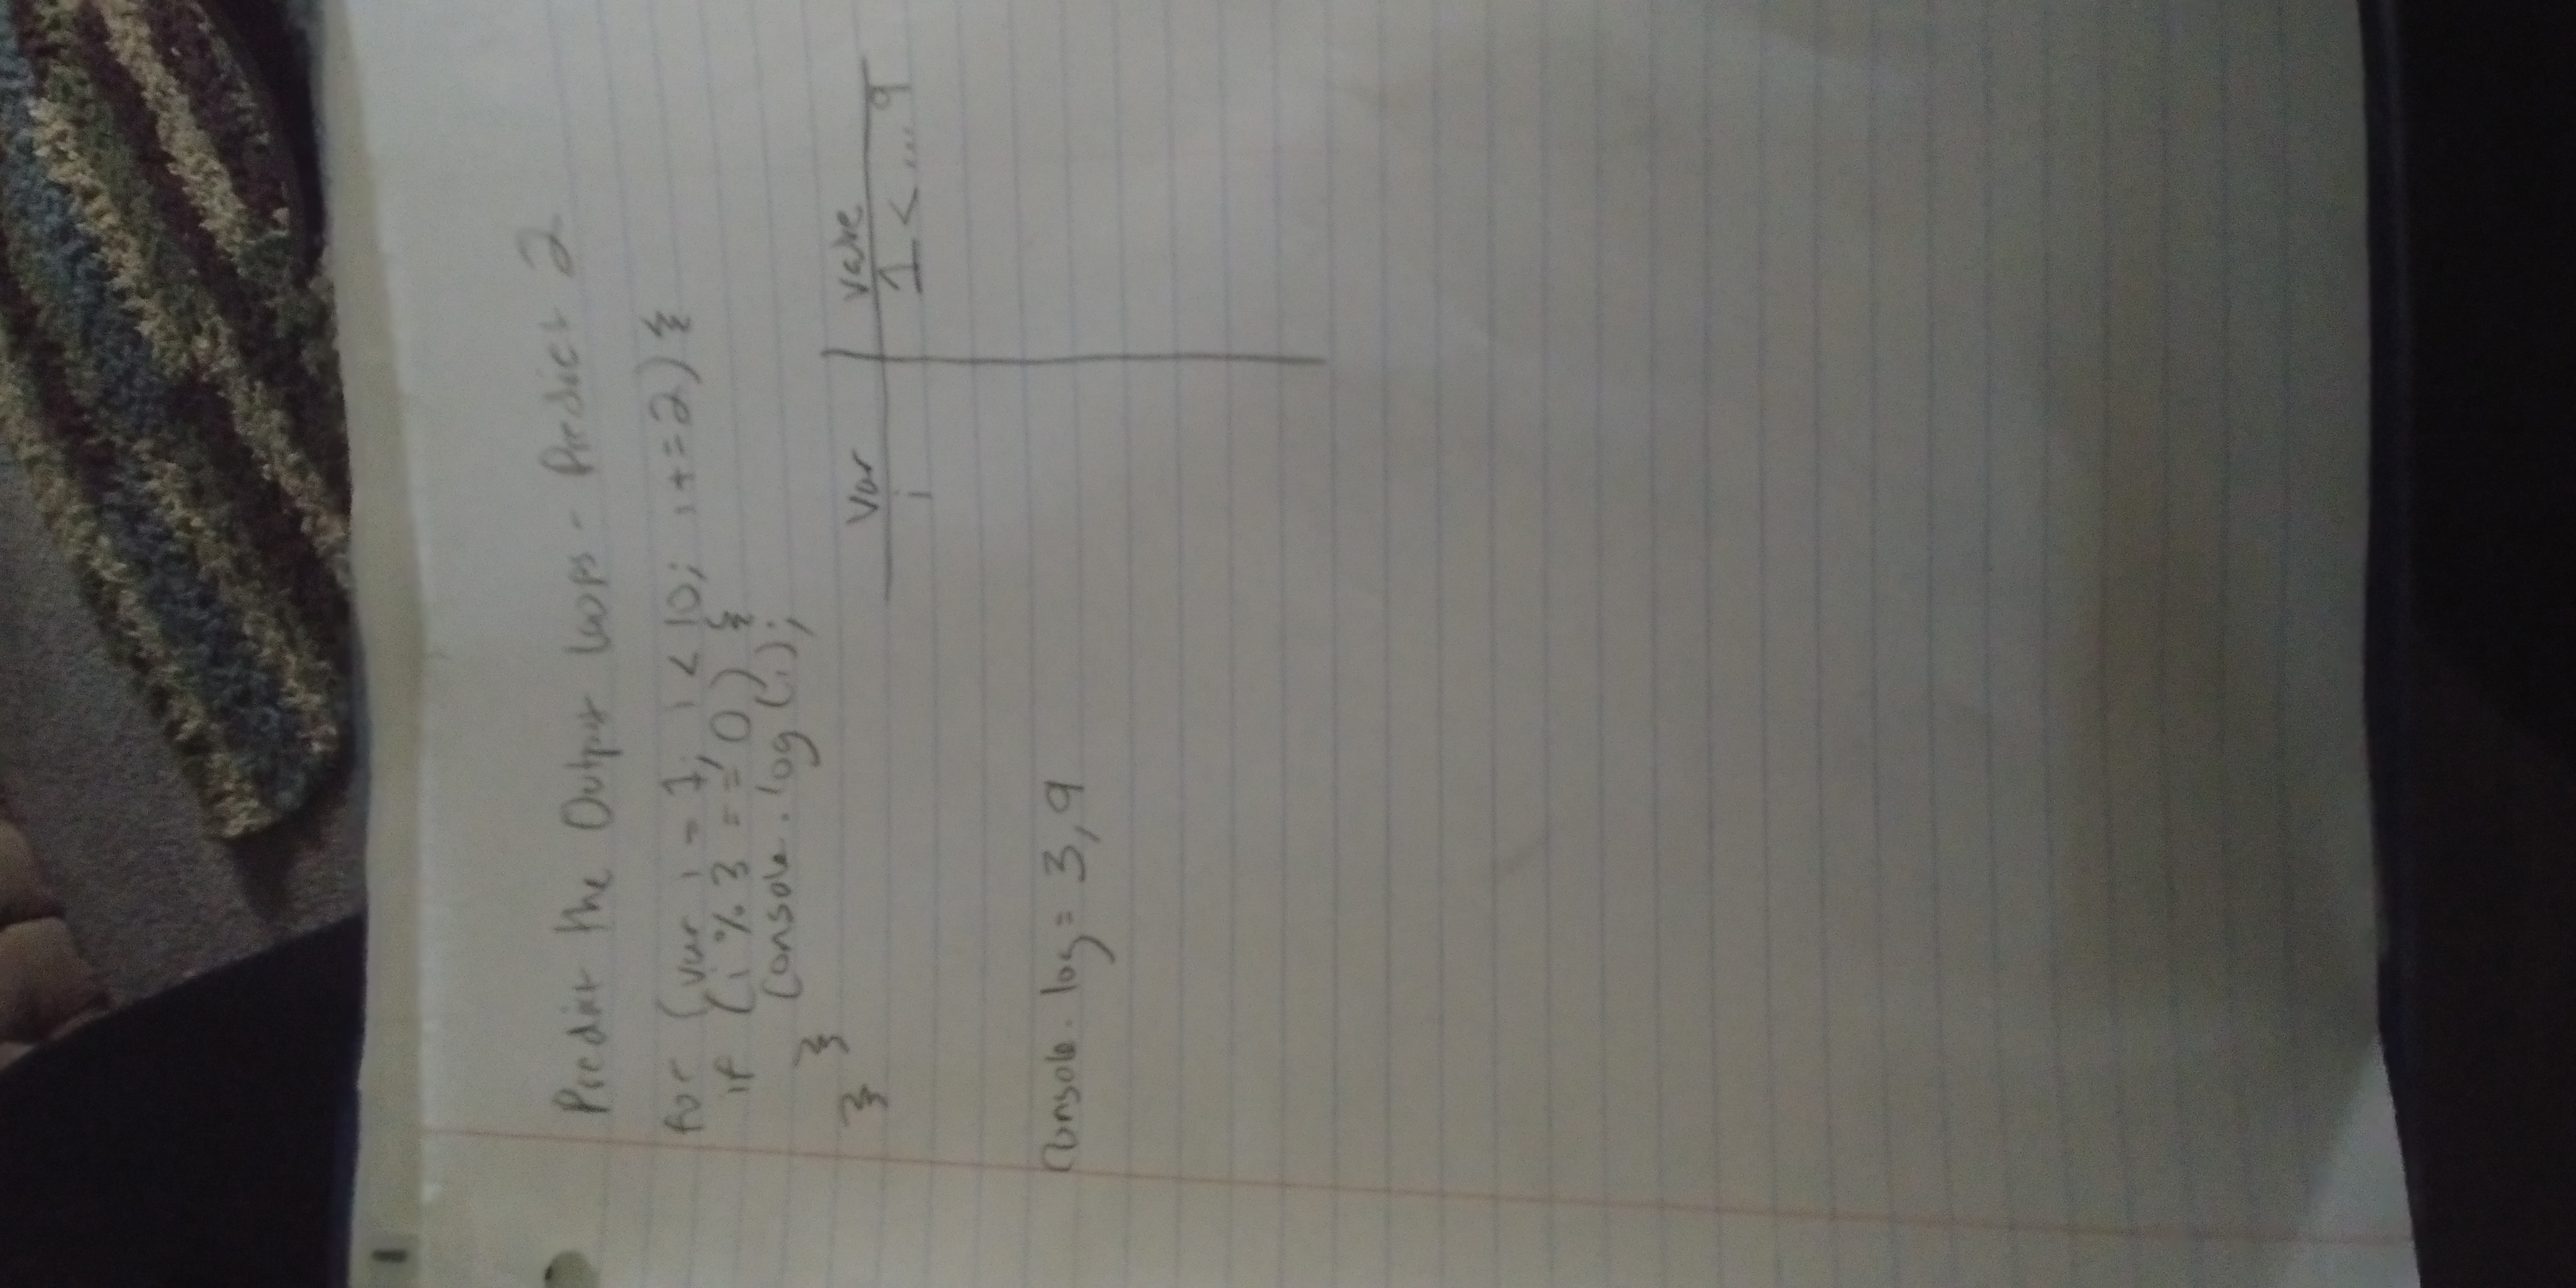 Predict the Output Loops - Predict 2
for (var i = 1; i < 10; i+=2) {
if (i % 3 == 0) {
console.log(i);
}
}
Var value
i 1 < ... 9
Console.log = 3, 9